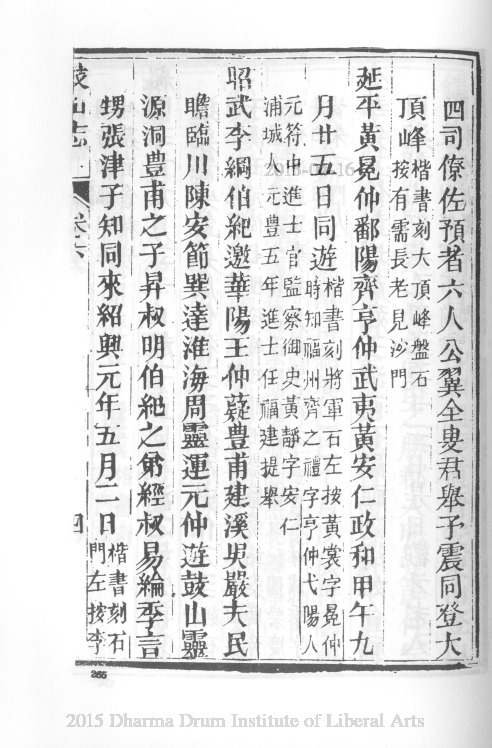 四司僚佐預者六人公翼全叟君舉子震同登大
頂峰楷書刻大頂峰盤石
按有需長老見沙門
延平黃冕仲鄱陽齊亨仲武夷黃安仁政和甲午九
月廿五日同遊楷書刻將軍石左按黃裳字冕仲
時知福州齊之禮字亨仲弋陽人
元符中進士官監察御史黃靜字安仁
浦城人元豐五年進士任福建提舉
昭武李綱伯紀邀華陽王仲薿豐甫建溪吳巖夫民
瞻臨川陳安節巽達淮海周靈運元仲遊鼓山靈
源洞豐甫之子昇叔明伯紀之弟經叔易綸季言
甥張津子知同來紹興元年五月二日楷書刻石
門左按李
鼓山志
卷六
四
265
2015 Dharma Drum Institute of Liberal Arts